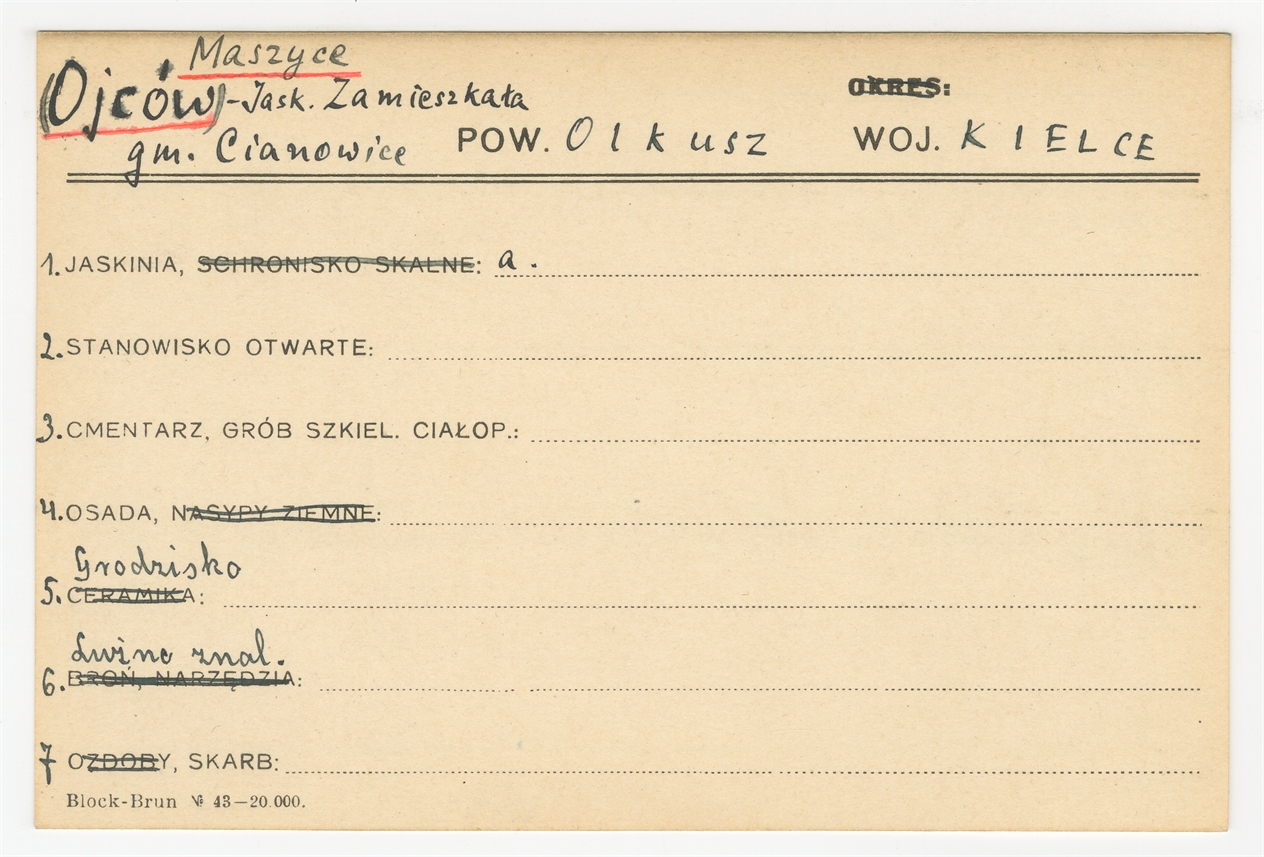 Maszyce
(Ojców) - Jask. Zamieszkała
OKRES:
gm. Cianowice POW. Olkusz WOJ. KIELCE
1. JASKINIA, SCHRONISKO SKALNE: a.
2. STANOWISKO OTWARTE:
3. CMENTARZ, GRÓB SZKIEL. CIAŁOP.:
4. OSADA, NASYPY ZIEMNE:
Grodzisko
5. CERAMIKA:
Luźne znal.
6. BROŃ, NARZĘDZIA:
7 OZDOBY, SKARB:
Block-Brun № 43—20.000.